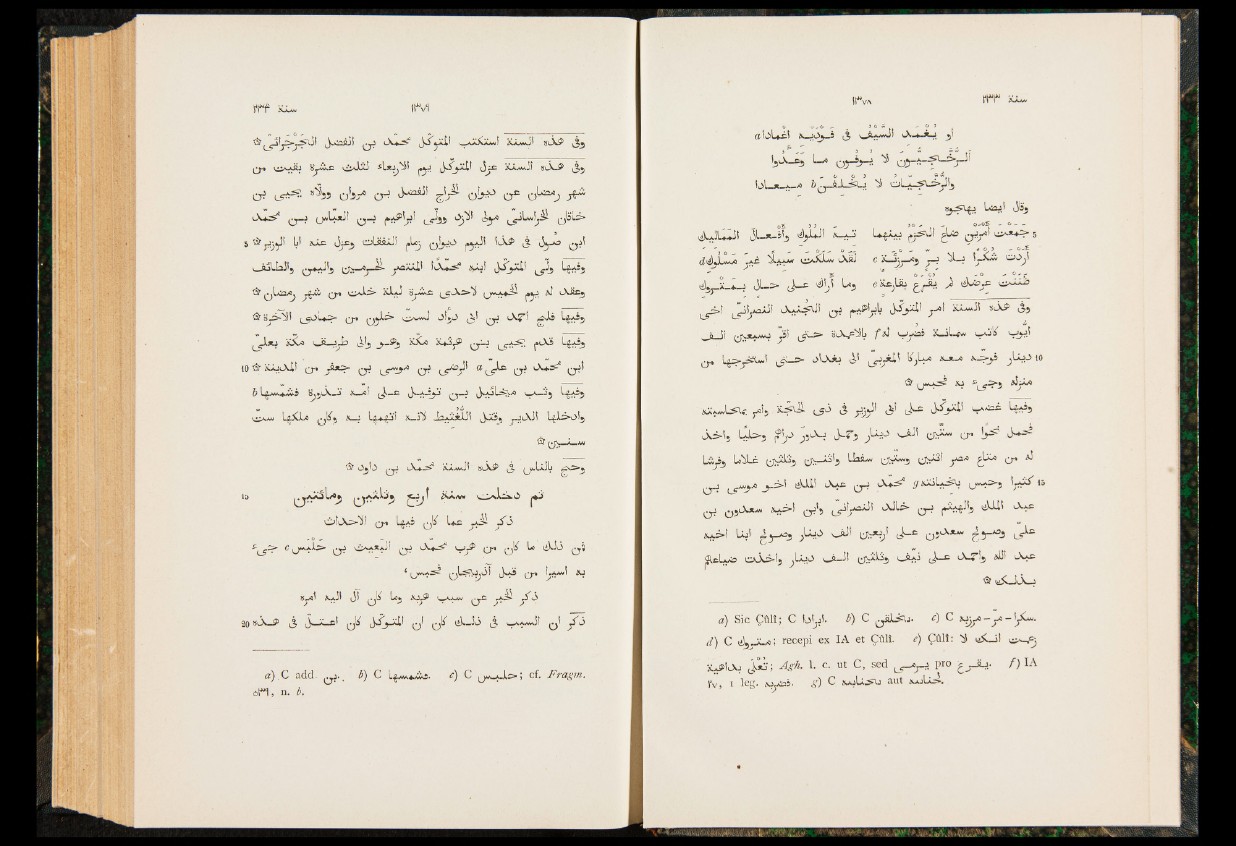 سنة ٢٣٣ ١٣٧٨
او يُغْمَدَ السَّيْفُ فى فَوْدَيْهِ إغمادا a
ألرُّخَّجِيُّونَ لا يُوفُونَ ما وَعَدُوا
والرُّخَّجِيَّاتُ لا يُخْلِفْنَ b ميعادا
وقال ايضا يهجوه
5 جَمَعْتَ أَمْرَيْنِ ضاعَ الحَزْمُ بينهما تيهَ المُلُوكِ وأَفْعالَ المَمَاليكِ
أَرَدْتَ شُكْرًا بلا بِرٍّ ومَرْزِئَةٍ c لَقَدْ سَلَكْتَ سَبيلًا غيرَ مَسْلُوكِ d
ظَنَنْتَ عِرْضَك لم يُقْرَعْ بقارعةٍ e وما أَراكَ على حال بمَتْروكِ
وفى هذه السنة امر المتوكّل بابراهيم بن الجُنَيد النصرانىّ اخى
أيّوب كاتب سمانة فضُرب له f بالاعمدة حتى اقرّ بسبعين الف
10 دينار فوجّه معه مباركا المغربىّ الى بغداد حتى استخرجها من
منزله وجىء به فحُبس ۞
وفيها غضب المتوكّل على ابى الوزير فى ذى الحجّة وامر بمحاسبته
فحمل نحوا من ستّين الف دينار وحمل بدورَ دراهم وحليًا واخذ
له من متاع مصر اثنين وستّين سفطا واثنين وثلثين غلاما وفرشا
15 كثيرا وحبس بخيانته g محمّد بن عبد الملك اخو موسى بن
عبد الملك والهيثم بن خالد النصرانىّ وابن اخيه سعدون بن
علىّ وصولح سعدون على اربعين الف دينار وصولح ابنا اخيه
عبد الله واحمد على نيّف وثلثين الف دينار واخذت ضياعهم
بذلك ۞
a) Sic Çûlî; C ابرادا. b) C يخلفن. c) C سكرا – مرّ – مرزيه.
d) C متروك; recepi ex IA et Çûlî. e) Çûlî: زعمت انك لا
تُعْنَى بداهية; Agh. l. c. ut C, sed يرمى pro يقرع. f) IA
٢٧, 1 leg. فضربه.
سنة ٢٣۴ ١٣٧٩
وفى هذه السنة استكتب المتوكّل محمّد بن الفضل الجَرْجَرائىّ ۞
وفى هذه السنة عزل المتوكّل يوم الاربعاء لثلث عشرة بقيت من
شهر رمضان عن ديوان الخراج الفضل بن مروان وولّاه يحيى بن
خاقان الخراسانىّ مولى الازد وولّى ابراهيم بن العبّاس بن محمّد
5 ابن صُول فى هذا اليوم ديوان زمام النفقات وعزل عنه ابا الوزير ۞
وفيها ولّى المتوكّل ابنه محمّدًا المنتصر الحَرَمين واليمن والطائف
وعقد له يوم الخميس لاحدى عشرة ليلة خلت من شهر رمضان ۞
وفيها فلج احمد بن ابى دواد لستّ خلون من جمادى الآخرة ۞
وفيها قدم يحيى بن هرثمة مكّة وهو والى طريق مكّة بعلىّ
10 ابن محمّد بن علىّ a الرضى بن موسى بن جعفر من المدينة ۞
وفيها وثب ميخائيل بن توفيل على امّه تذورة فشمّسها b
وادخلها الدير وقتل اللُغُثيط لانه اتهمها به وكان ملكها ستّ
سنين ۞
وحجّ بالناس فى هذه السنة محمّد بن داود ۞
15 ثم دخلت سنة أربع وثلثين ومائتين
ذكر الخبر عما كان فيها من الاحداث
فمن ذلك ما كان من هرب محمد بن البَعيث بن حَلْبَس c جىء
به اسيرا من قبل آذربيجان فحبس،
ذكر الخبر عن سبب هربه وما كان آل اليه امره
20 ذُكر ان السبب فى ذلك كان ان المتوكّل كان اعتلّ فى هذه
a) C add. بن. b) C فشمسها. c) C حليس; cf. Fragm.
n. b.